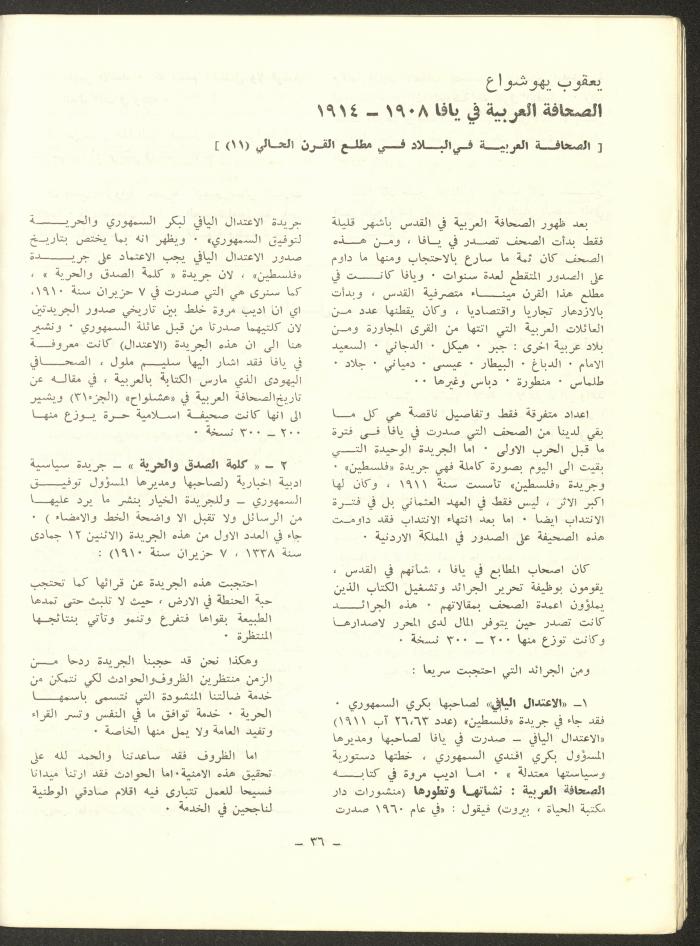 يعقوب يهوشواع
الصحافة العربية في يافا ١٩٠٨ – ١٩١٤
[ الصحافة العربية في البلاد في مطلع القرن الحالي (١١) ]
بعد ظهور الصحافة العربية في القدس بأشهر قليلة
فقط بدأت الصحف تصدر في يافا ، ومن هذه
الصحف كان ثمة ما سارع بالاحتجاب ومنها ما داوم
على الصدور المتقطع لعدة سنوات ٠ ويافا كانت في
مطلع هذا القرن ميناء متصرفية القدس ، وبدأت
بالازدهار تجاريا واقتصاديا ، وكان يقطنها عدد من
العائلات العربية التي اتتها من القرى المجاورة ومن
بلاد عربية اخرى : جبر ٠ هيكل ٠ الدجاني ٠ السعيد
الامام ٠ الدباغ ٠ البيطار ٠ عيسى ٠ دمياني ٠ جلاد ٠
طلماس ٠ منطورة ٠ دباس وغيرها ٠٠
اعداد متفرقة فقط وتفاصيل ناقصة هي كل ما
بقي لدينا من الصحف التي صدرت في يافا في فترة
ما قبل الحرب الاولى ٠ اما الجريدة الوحيدة التي
بقيت الى اليوم بصورة كاملة فهي جريدة «فلسطين» ٠
وجريدة «فلسطين» تأسست سنة ١٩١١ ، وكان لها
اكبر الاثر ، ليس فقط في العهد العثماني بل في فترة
الانتداب ايضا ٠ اما بعد انتهاء الانتداب فقد داومت
هذه الصحيفة على الصدور في المملكة الاردنية ٠
كان اصحاب المطابع في يافا ، شأنهم في القدس ،
يقومون بوظيفة تحرير الجرائد وتشغيل الكتاب الذين
يملؤون اعمدة الصحف بمقالاتهم ٠ هذه الجرائد
كانت تصدر حين يتوفر المال لدى المحرر لاصدارها
وكانت توزع منها ٢٠٠ – ٣٠٠ نسخة ٠
ومن الجرائد التي احتجبت سريعا :
١– «الاعتدال اليافي» لصاحبها بكري السمهوري ٠
فقد جاء في جريدة «فلسطين» (عدد ٢٦،٦٣ آب ١٩١١)
«الاعتدال اليافي – صدرت في يافا لصاحبها ومديرها
المسؤول بكري افندي السمهوري ، خطتها دستورية
وسياستها معتدلة » ٠ اما اديب مروة في كتابه
الصحافة العربية : نشأتها وتطورها (منشورات دار
مكتبة الحياة ، بيروت) فيقول : «في عام ١٩٦٠ صدرت
جريدة الاعتدال اليافي لبكر السمهوري والحرية
لتوفيق السمهوري» ٠ ويظهر انه بما يختص بتاريخ
صدور الاعتدال اليافي يجب الاعتماد على جريدة
«فلسطين» ، لان جريدة « كلمة الصدق والحرية » ،
كما سنرى هي التي صدرت في ٧ حزيران سنة ١٩١٠،
اي ان اديب مروة خلط بين تاريخي صدور الجريدتين
لان كلتيهما صدرتا من قبل عائلة السمهوري ٠ ونشير
هنا الى ان هذه الجريدة (الاعتدال) كانت معروفة
في يافا فقد اشار اليها سليم ملول ، الصحافي
اليهودى الذي مارس الكتابة بالعربية ، في مقاله عن
تاريخ الصحافة العربية في «هشلواح» (الجزء٣١) ويشير
الى انها كانت صحيفة اسلامية حرة يوزع منها
٢٠٠ – ٣٠٠ نسخة ٠
٢ – « كلمة الصدق والحرية » – جريدة سياسية
ادبية اخبارية (لصاحبها ومديرها المسؤول توفيق
السمهوري – وللجريدة الخيار بنشر ما يرد عليها
من الرسائل ولا تقبل الا واضحة الخط والامضاء ) ٠
جاء في العدد الاول من هذه الجريدة (الاثنين ١٢ جمادى
سنة ١٣٣٨ ، ٧ حزيران سنة ١٩١٠) :
احتجبت هذه الجريدة عن قرائها كما تحتجب
حبة الحنطة في الارض ، حيث لا تلبث حتى تمدها
الطبيعة بقواها فتفرع وتنمو وتأتي بنتائجها
المنتظرة ٠
وهكذا نحن قد حجبنا الجريدة ردحا من
الزمن منتظرين الظروف والحوادث لكي نتمكن من
خدمة ضالتنا المنشودة التي نتسمى باسمها
الحرية ٠ خدمة توافق ما في النفس وتسر القراء
وتفيد العامة ولا يمل منها الخاصة ٠
اما الظروف فقد ساعدتنا والحمد لله على
تحقيق هذه الامنية٠اما الحوادث فقد ارتنا ميدانا
فسيحا للعمل تتبارى فيه اقلام صادقي الوطنية
لناجحين في الخدمة ٠
– ٣٦ –